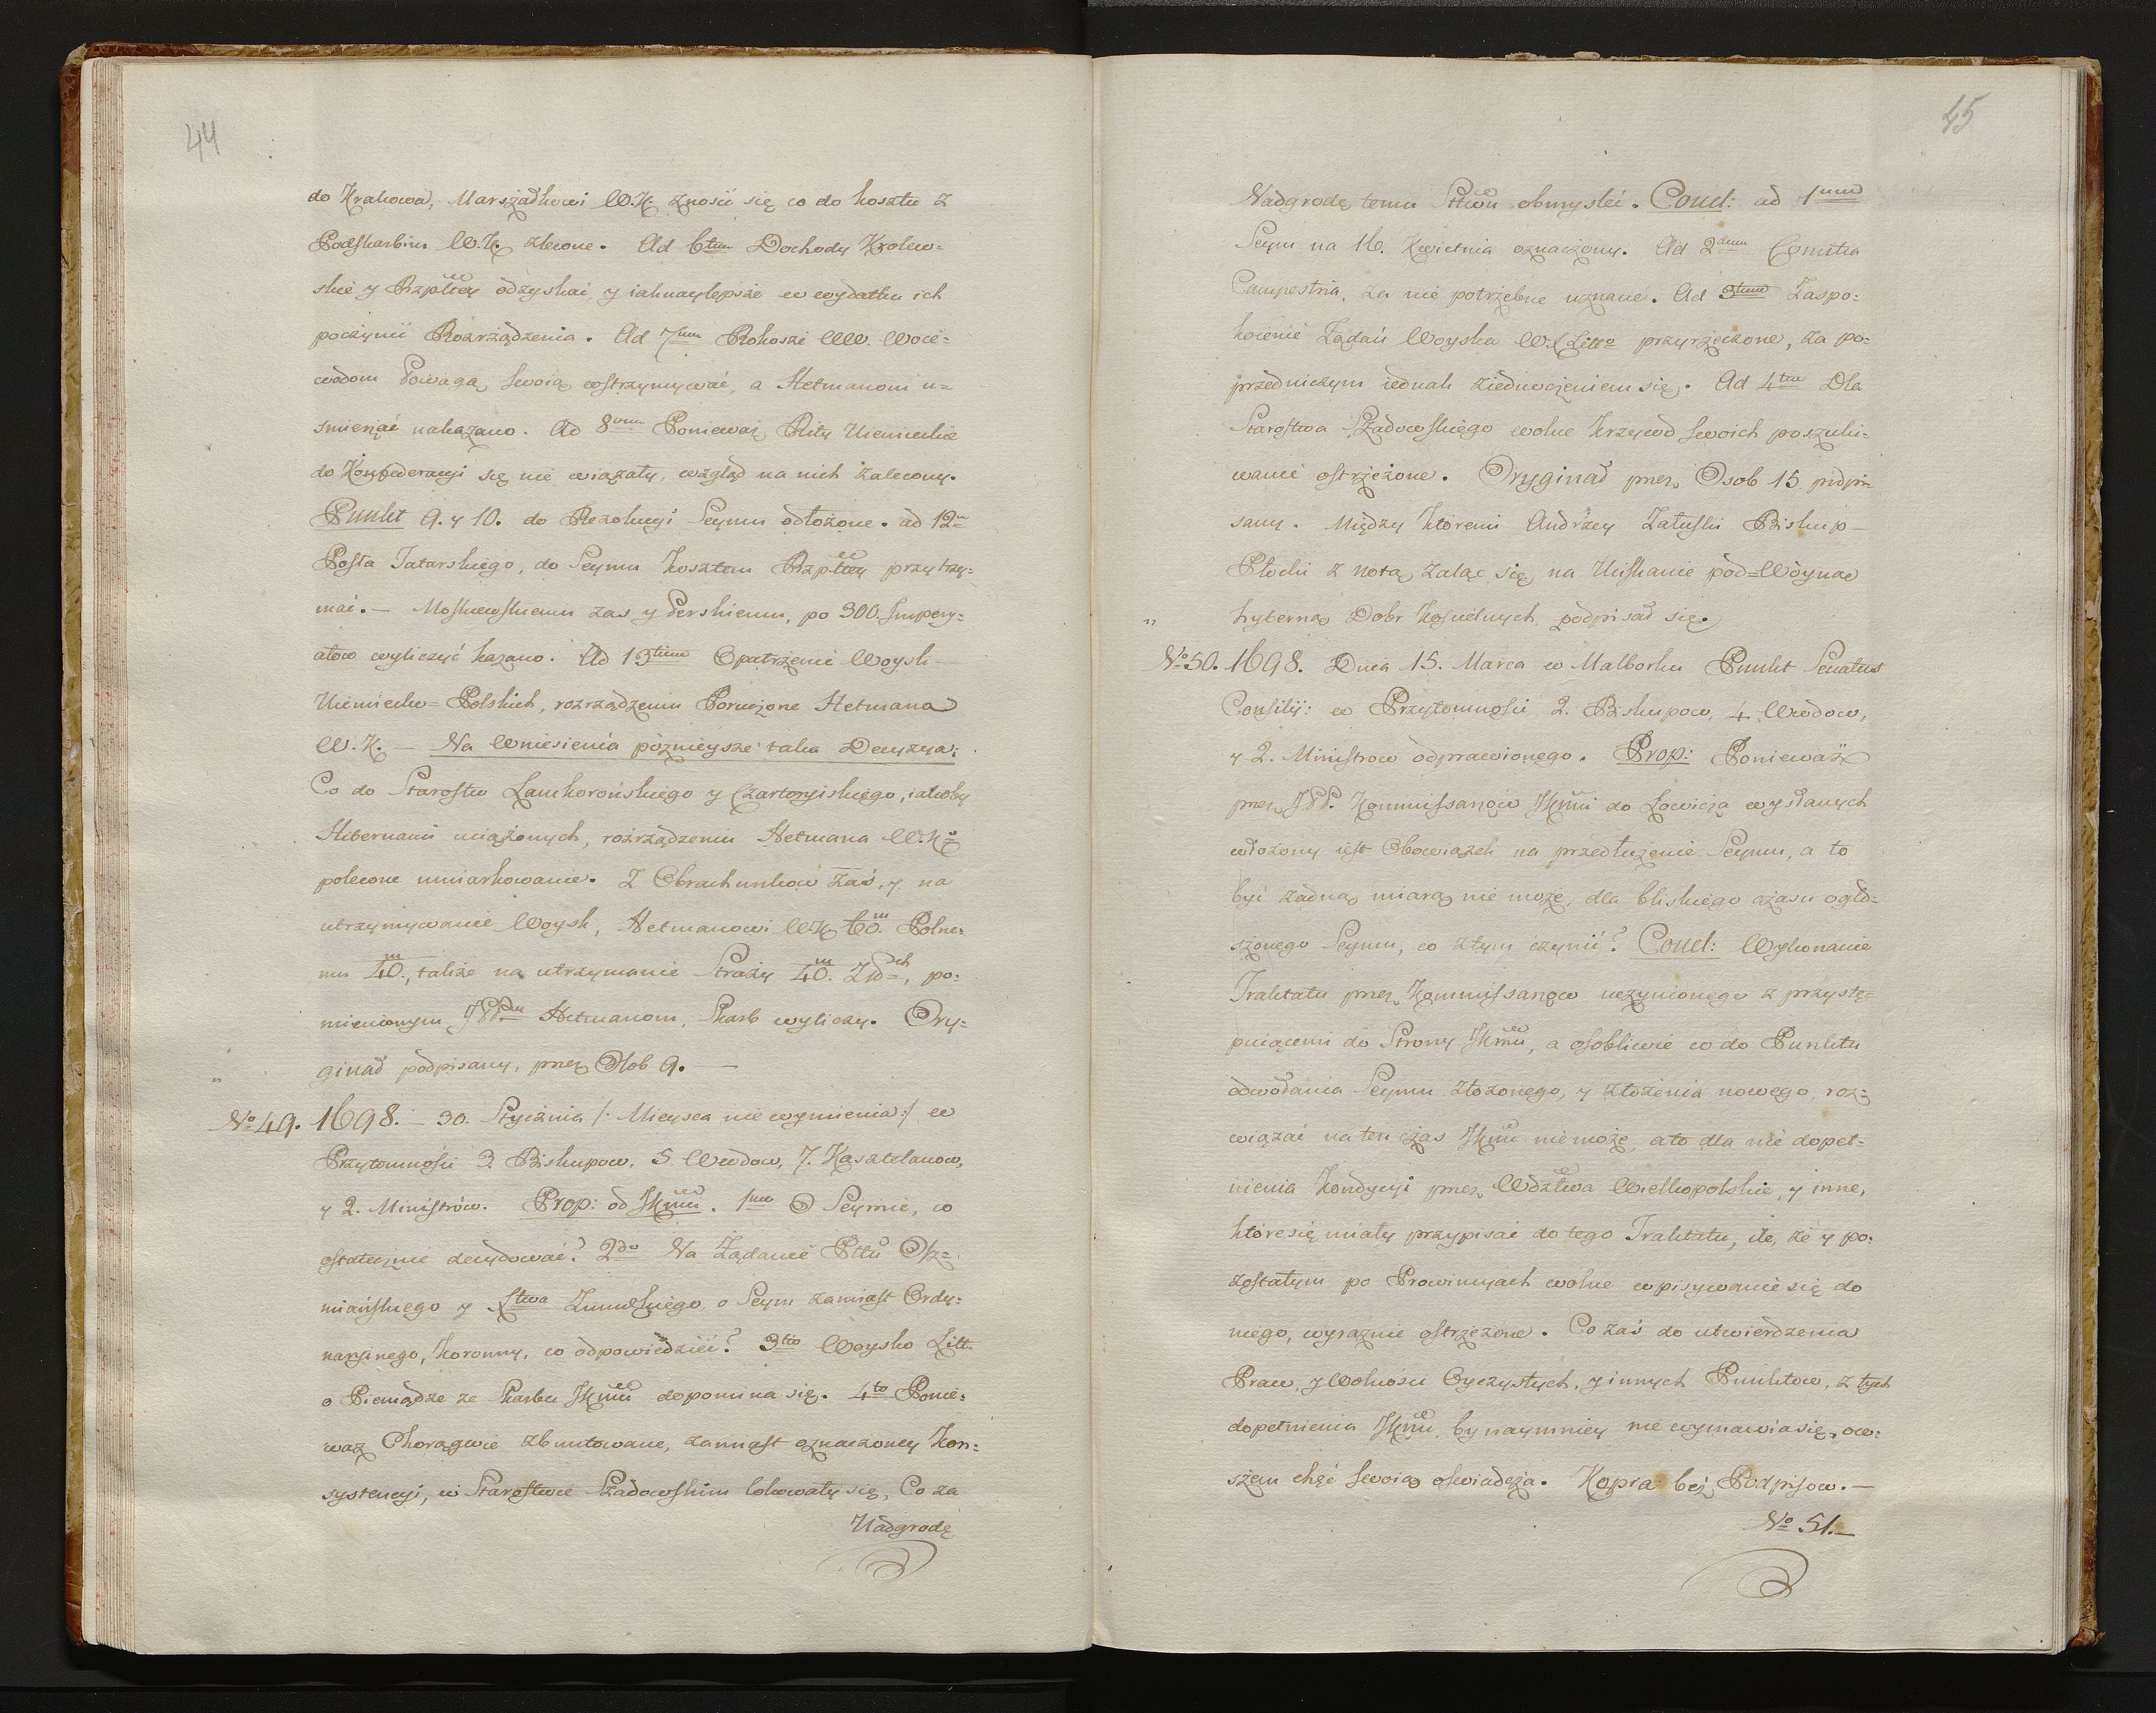 44
do Krakowa, Marszadkowi W.K. znosić się co do kosztu z
Podskarbim W.K. zlecone. Ad 6tum Dochody Krolew=
skie y Rzpltey odzyskać y iaknaylepsze w wydatku ich
poczynić Rozrządzenia. Ad 7mum Rokosze WW. Woie=
wodom Powagą swoią wstrzymywać, a Hetmanom u=
smierząć nakazano. Ad 8vum Poniewaz Pułki Niemieckie
do Konfederacyi się nie wiązały, wzgląd na nich zalecony.
Punkt 9. y 10. do Rezolucyi Seymu odłożone. ad 12m
Posła Tatarskiego, do Seymu kosztem Rzpltey przytrzy=
mać. — Moskiewskiemu zas y Perskiemu, po 300. Impery=
ałow wyliczyć kazano. Ad 13tium Opatrzenie Woysk
Niemiecko=Polskich, rozrządzeniu Poruczone Hetmana
W.K. — Na Wniesienia poznieysze taka Decyzya:
Co do Starostw Lanckorońskiego y Czartoryiskiego, iakoby
Hibernami uciążonych, rozrządzeniu Hetmana W.Ko
polecone umiarkowanie. Z Obrachunkow zaś, y na
utrzymywanie Woysk, Hetmanowi WK 60.m Polne=
mu 40.m, takze na utrzymanie Straży 40.m Złd=ch, po=
mienionym JPPdm Hetmanom, Skarb wyliczy. Ory=
ginał podpisany, przez Osob 9. —
"
No 49. 1698. — 30. Stycznia /: Mieysca nie wymienia :/ w
Przytomności 3. Biskupow, 5 Wwdow, 7. Kasztelanow,
y 2. Ministrów. Prop: od JKmci. 1mo O Seymie, co
ostateczne decydować? 2do Na Żądanie Pttu Osz=
miańskiego y Xtwa Zmudzkiego, o Seym zamiast Ordy=
naryinego, Koronny, co odpowiedzieć? 3tio Woysko Litt.
o Pieniądze ze Skarbu JKmci dopomina się. 4to Ponie=
waz Chorągwie zbuntowane, zamiast oznaczoney Kon=
systencyi, w Starostwie Szadowskim lokowały się, Co za
Nadgrodę
45
Nadgrodę temu Sttwu obmyslić. Concl: ad 1mum
Seym na 16. Kwietnia oznaczony. Ad 2dum Comitia
Campestria, za nie potrzebne uznane. Ad 3tium Zaspo=
koienie Żądań Woyska WXLitto przyrzeczone, za po=
przedniczym iednak ziednoczeniem się. Ad 4tum Dla
Starostwa Szadowskiego wolne Krzywd swoich poszuki=
wanie ostrzeżone. Oryginał przez Osob 15 podpi=
sany. Między ktoremi Andrzey Załuski Biskup —
Płocki z notą żaląc się na Uciskanie pod=Woyną
hyberną Dobr Kościelnych podpisał się.
"
No 50. 1698. Dnia 15. Marca w Malborku Punkt Senatus
Consilij: w Przytomności 2. Biskupow, 4 Wwdow,
y 2. Ministrow odprawionego. Prop: Poniewaz
przez JPP. Kommissarzów JKmci do Łowicza wysłanych
włożony iest Obowiązek na przedłużenie Seymu, a to
być żadną miarą nie może, dla bliskiego czasu ogło=
szonego Seymu, co ztym czynić? Concl: Wykonanie
Traktatu przez Kommissarzow uczynionego z przystę=
puiącemi do Strony JKmci, a osobliwie co do Punktu
odwołania Seymu złożonego, y złożenia nowego, roz=
wiązać na ten czas JKmć nie może, a to dla nie dopeł=
nienia Kondycyi przez Wdztwa Wielkopolskie, y inne,
które się miały przypisać do tego Traktatu, ile, że y po=
zostałym po Prowincyach wolne wpisywanie się do
niego, wyraznie ostrzeżone. Co zaś do utwierdzenia
Praw, y Wolności Oyczystych, y innych Punktow, z tych
dopełnienia JKmć bynaymniey nie wymawia się, ow=
szem chęć swoią oświadcza. Kopia bez Podpisow. —
No 51. —